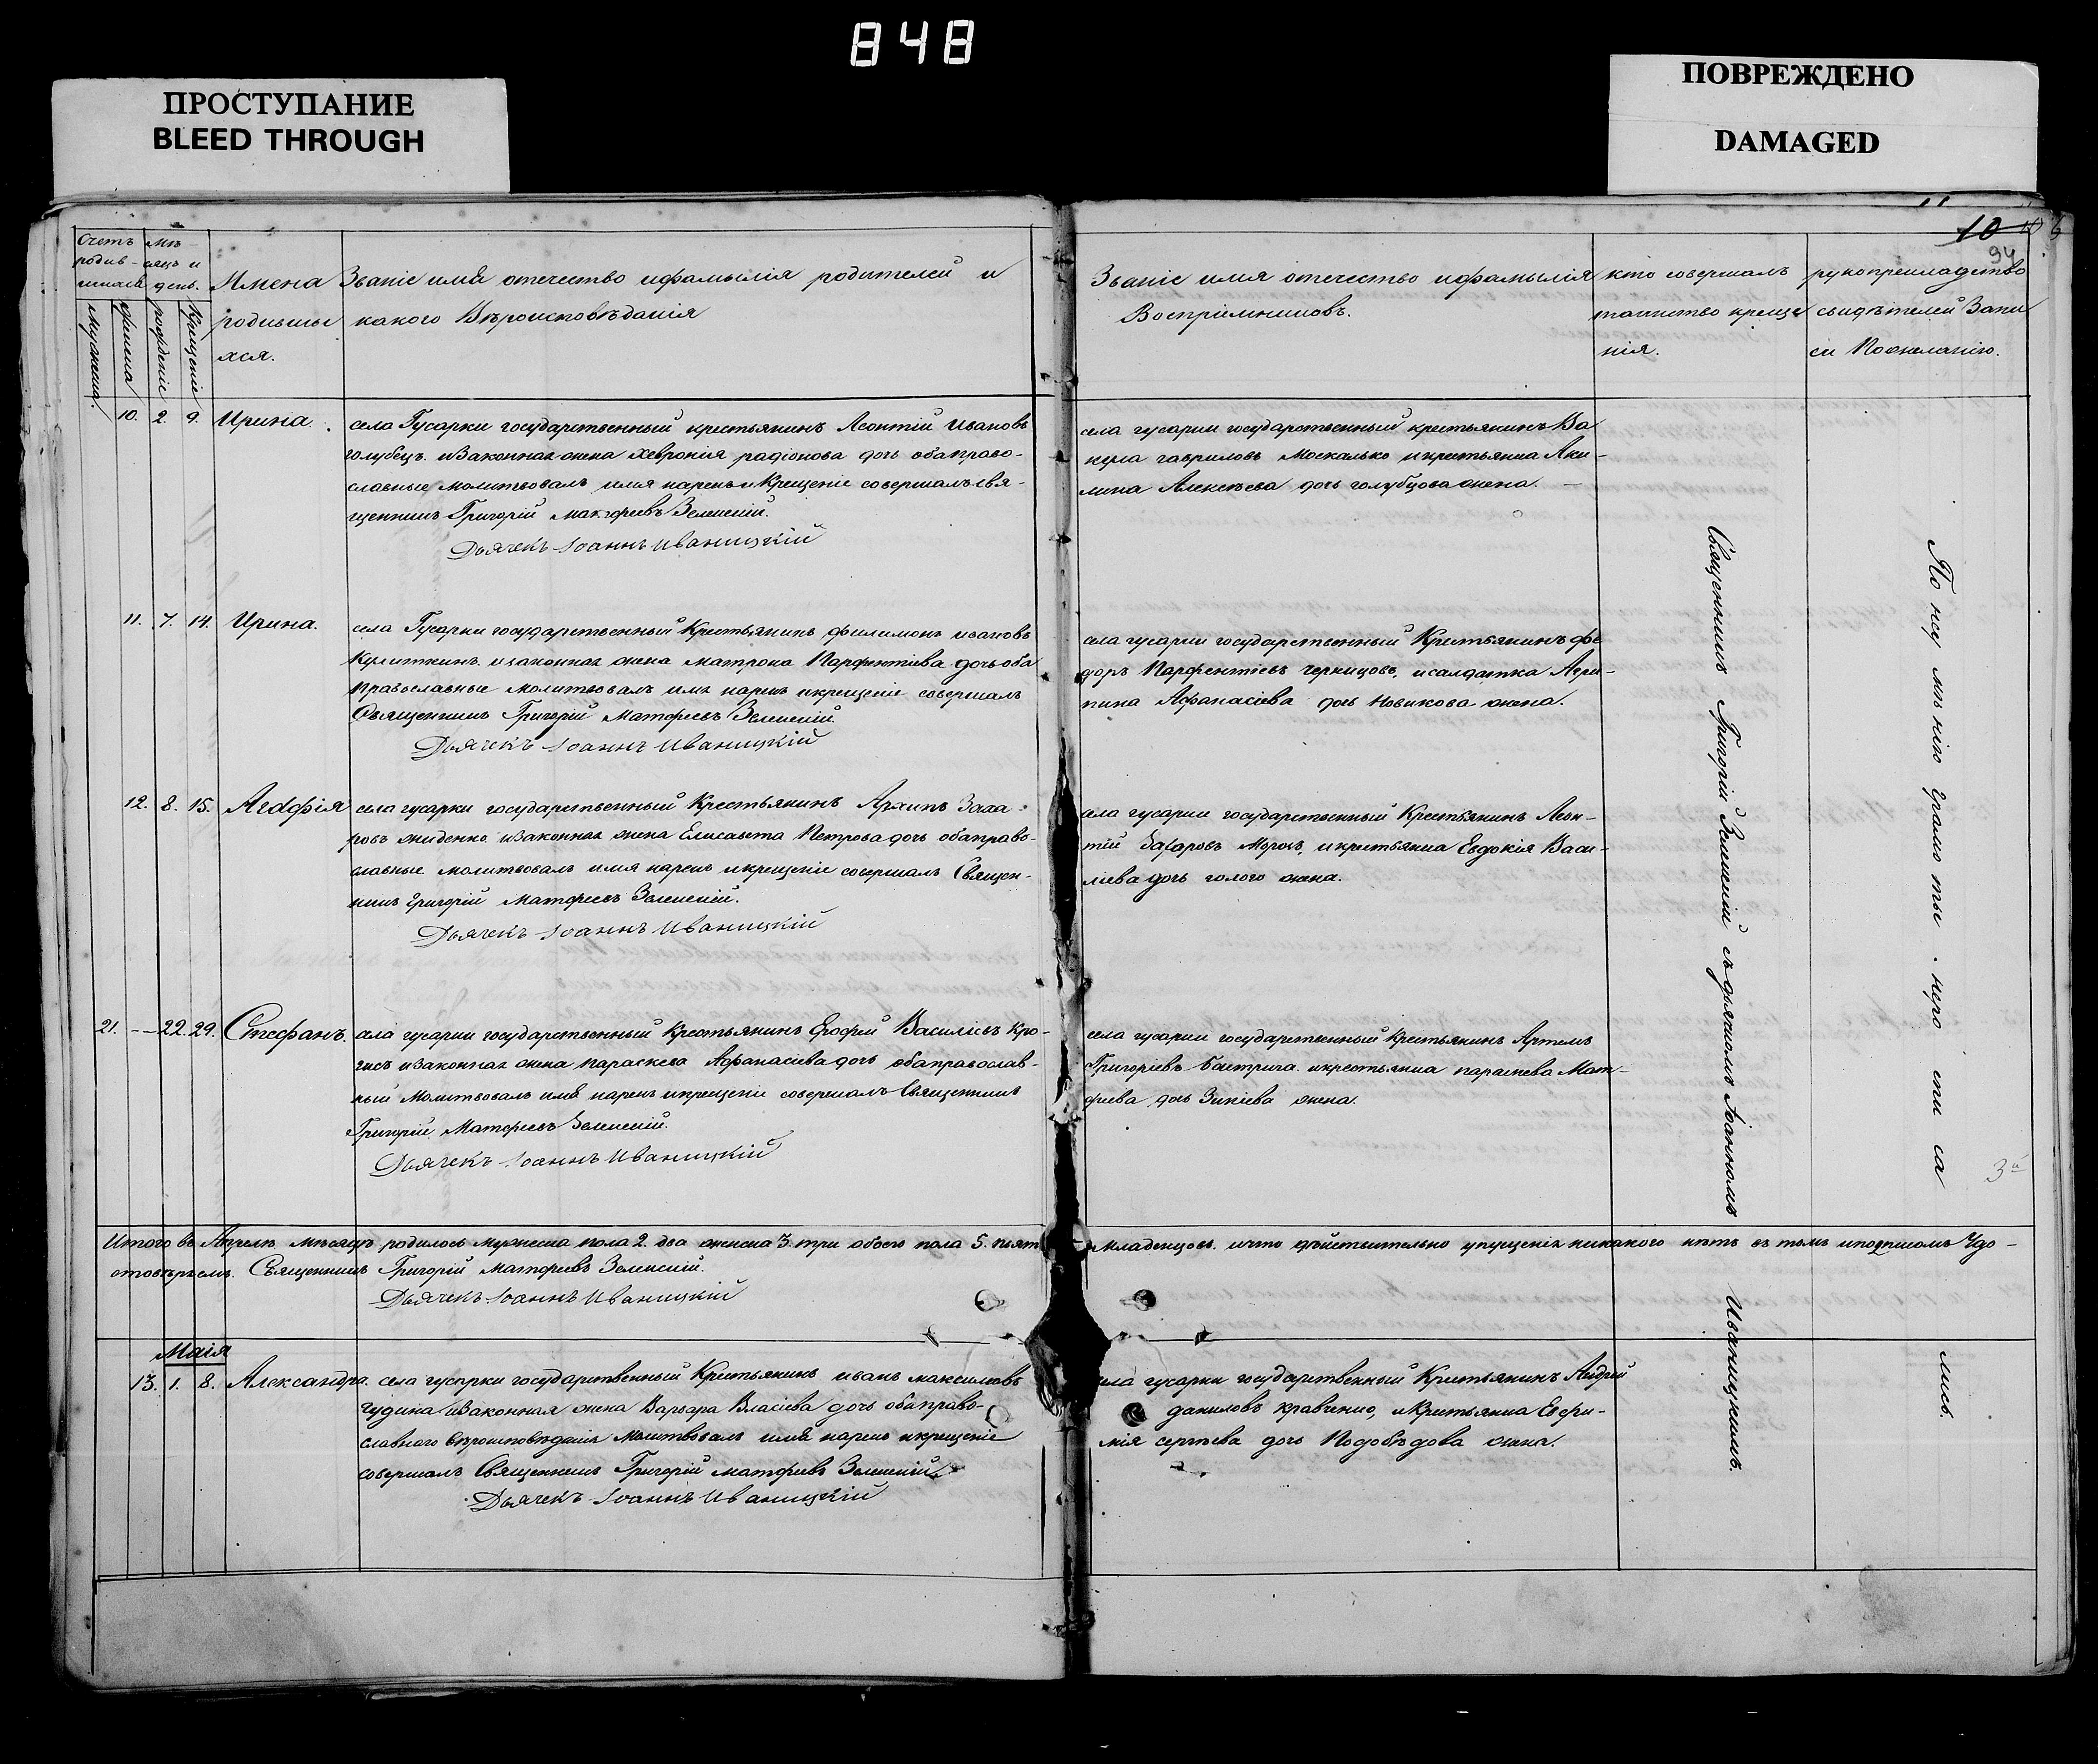 848
ПРОСТУПАНИЕ
BLEED THROUGH
ПОВРЕЖДЕНО
DAMAGED
10
94
Счетъ
родив-
шихся
мѣ-
сяцъ и
день.
Мужеска.
женска
рожденіе
Крещеніе
Имена
родивши
хся.
Званіе имя отечество ифамылія родителей и
какого Вѣроисповѣданія
Званіе имя отечество ифамылія
Воспріемниковъ.
кто совершалъ
таинство креще
нія.
рукоприкладство
свидѣтелей Запи
си Пожеланію.
10. 2. 9. Ирина.
села Гусарки государственный крестьянинъ Леонтій Ивановъ
голубецъ. иЗаконная жена Хевронія радіонова дочь обаправо-
славные молитвовалъ имя нарекъ иКрещеніе совершалъ свя-
щенникъ Григорій Матфеевъ Зеленскій.
Дьячекъ Іоаннъ Иваницкій
села гусарки государственный крестьянинъ Ва
кула гавриловъ Москалько икрестьянка Аку-
лина Алексѣева дочь голубцова жена.
11. 7. 14. Ирина.
села Гусарки государственный Крестьянинъ филимонъ ивановъ
Кулиткинъ. изаконная жена матрона Парфентіева дочь оба
Православные молитвовалъ имя нарекъ икрещеніе совершалъ
Священникъ Григорій Матфеевъ Зеленскій.
Дьячекъ Іоаннъ Иваницкій
села гусарки государственный Крестьянинъ фе
доръ Парфентіевъ Черницовъ, исалдатка Агри-
пина Афанасіева дочь Новикова жена.
12. 8. 15. Агафія
села гусарки государственный Крестьянинъ Архипъ Заха-
ровъ жиденко. иЗаконная жена Елисавета Петрова дочь обаправо-
славные молитвовалъ имя нарекъ икрещеніе совершалъ Священ-
никъ Григорій Матфеевъ Зеленскій.
Дьячекъ Іоаннъ Иваницкій
села гусарки государственный Крестьянинъ Леон-
тій Захаровъ Морозъ, икрестьянка Евдокія Васи-
ліева дочь голого жена.
21. -- 22. 29. Стефанъ.
села гусарки государственный Крестьянинъ Ерофей Василіевъ
изаконная жена параскева Афанасіева дочь обаправослав-
ный Молитвовалъ имя нарекъ икрещеніе совершалъ Священникъ
Григорій Матфеевъ Зеленскій.
Дьячекъ Іоаннъ Иваницкій
села гусарки государственный Крестьянинъ Артемъ
Григоріевъ икрестьянка параскева Мат-
феева дочь Зикіева жена.
Священникъ Григорій Зеленскій съ дьячкомъ Іоанномъ
Иваницкимъ.
По не умѣнію Грамоты неро спи са
лись.
3й
Итого въ Апрелѣ мѣсяцѣ родилось Мужеска пола 2. два женска 3. три обоего пола 5. пять Младенцовъ. ичто дѣйствительно упущенія никакого нѣтъ въ томъ иподписомъ Удо-
стовѣряемъ. Священникъ Григорій Матфеевъ Зеленскій.
Дьячекъ Іоаннъ Иваницкій
Маія
13. 1. 8. Александра.
села гусарки государственный Крестьянинъ иванъ максимовъ
гудина иЗаконная жена Варвара Власіева дочь обаправо-
славного Вѣроисповѣданія Молитвовалъ имя нарекъ икрещеніе
совершалъ Священникъ Григорій матфеевъ Зеленскій
Дьячекъ Іоаннъ Иваницкій
ела гусарки государственный Крестьянинъ Андрей
даниловъ кравченко, иКрестьянка Евфи-
мія сергѣева дочь Подобѣдова жена.